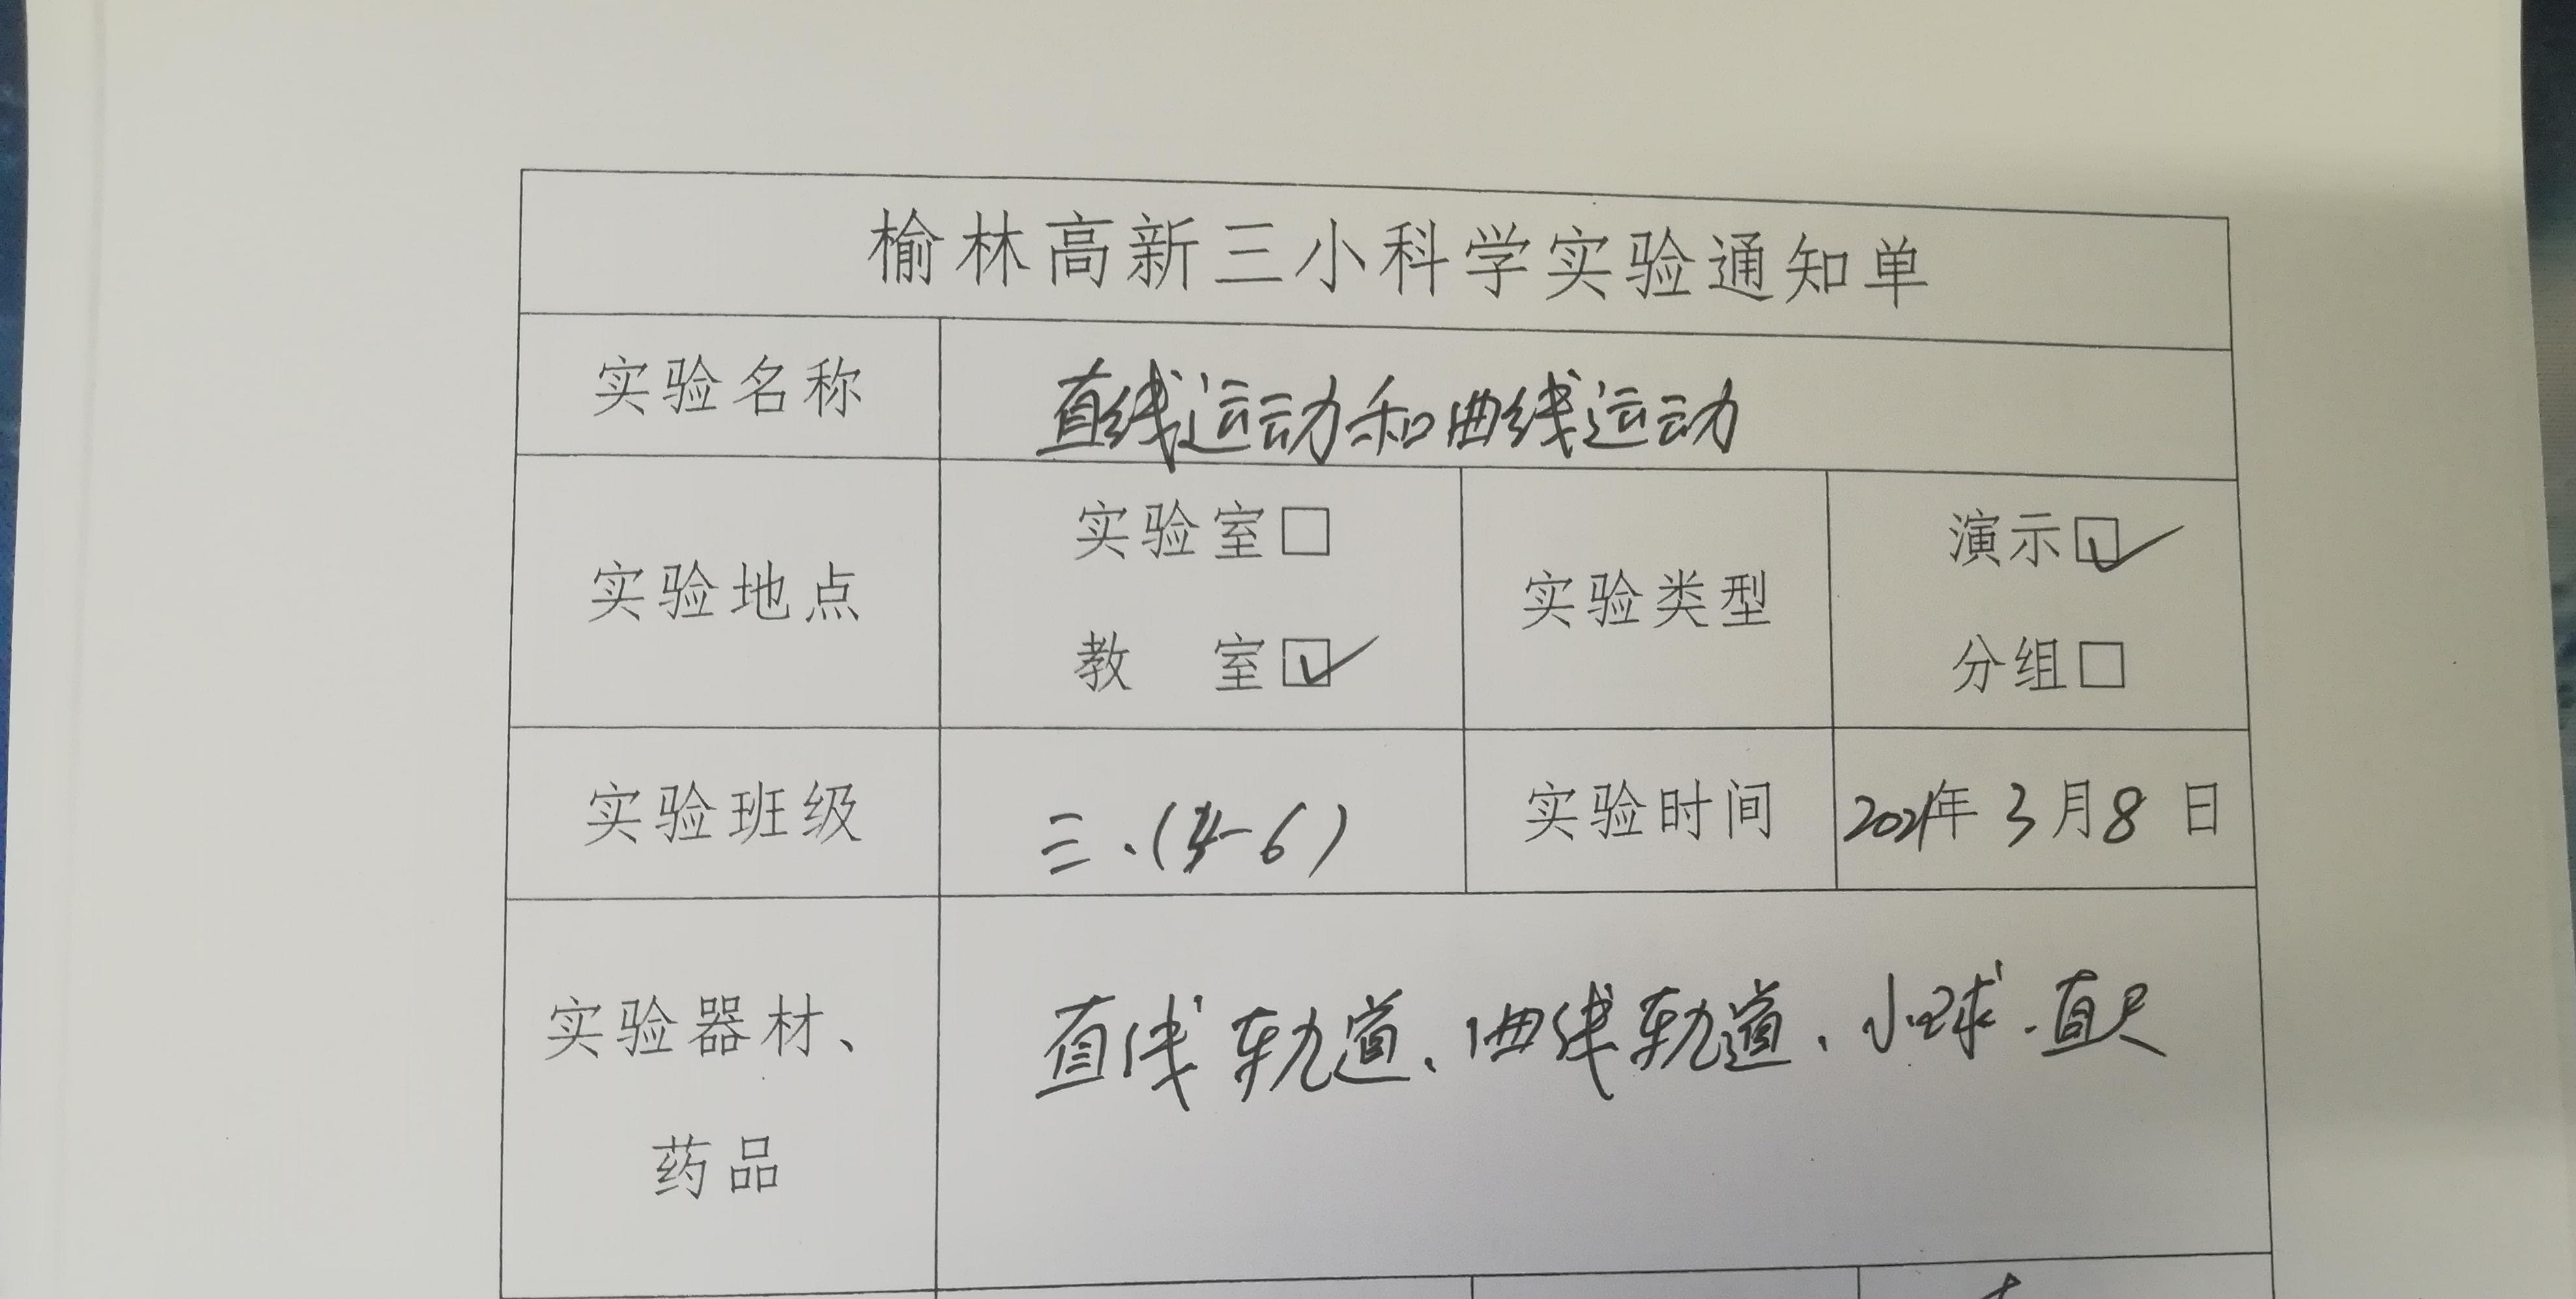 榆林高新三小科学实验通知单
实验名称 直线运动和曲线运动
实验地点 实验室□ 教 室☑ 实验类型 演示☑ 分组□
实验班级 三.(4-6) 实验时间 2021年3月8日
实验器材、药品 直线轨道、曲线轨道、小球、直尺